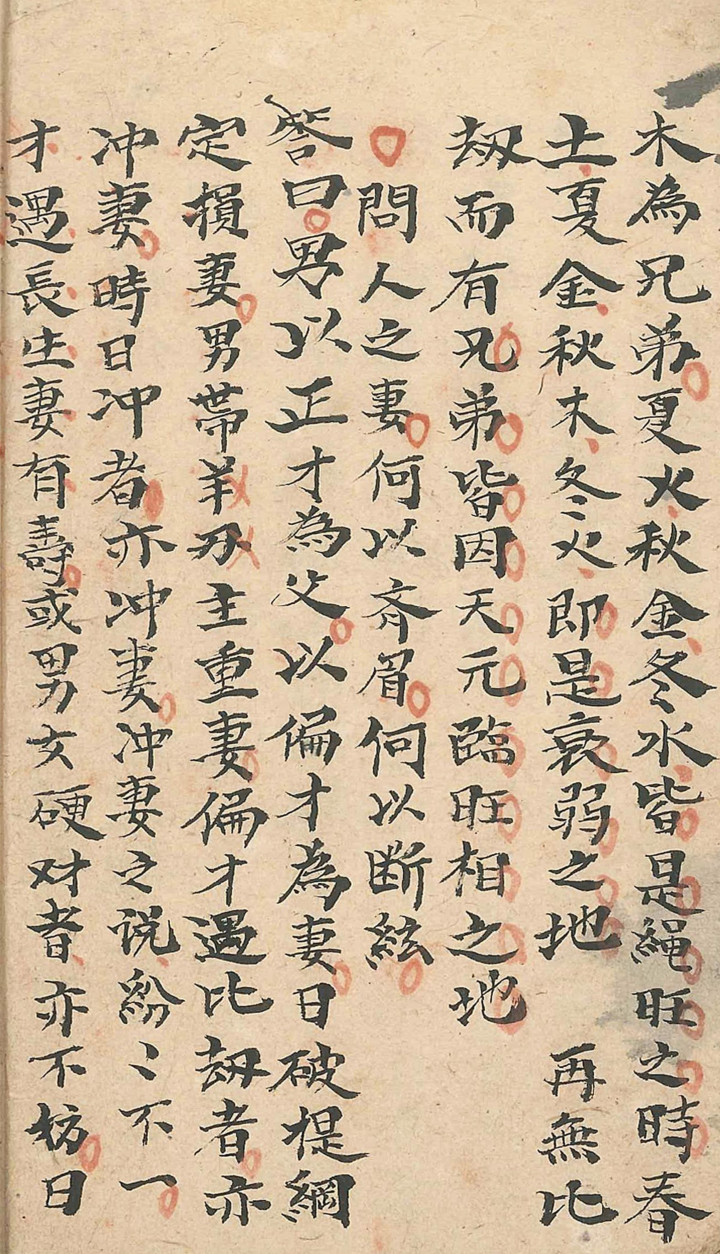 木為兄弟夏火秋金冬水皆是繩旺之時春
土夏金秋木冬火即是衰弱之地　再無比
劫而有兄弟皆因天元臨旺相之地
問人之妻何以齐眉何以断絃
答曰男以正才為父以偏才為妻日破提綱
定損妻男帯羊刃主重妻偏才遇比劫者亦
冲妻時日冲者亦冲妻冲妻之说紛〻不一
才遇長生妻有壽或男女硬对者亦不妨日